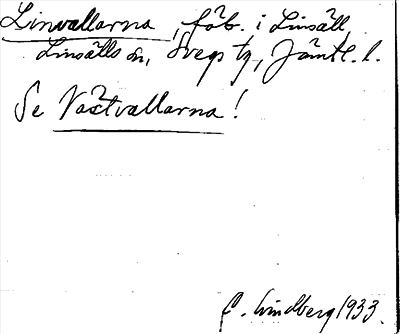 Linvallarna, fäb. i Linsäll,
Linsälls sn, Svegs tg, Jämtl. l.
Se Västvallarna!
C. Lindberg 1933.